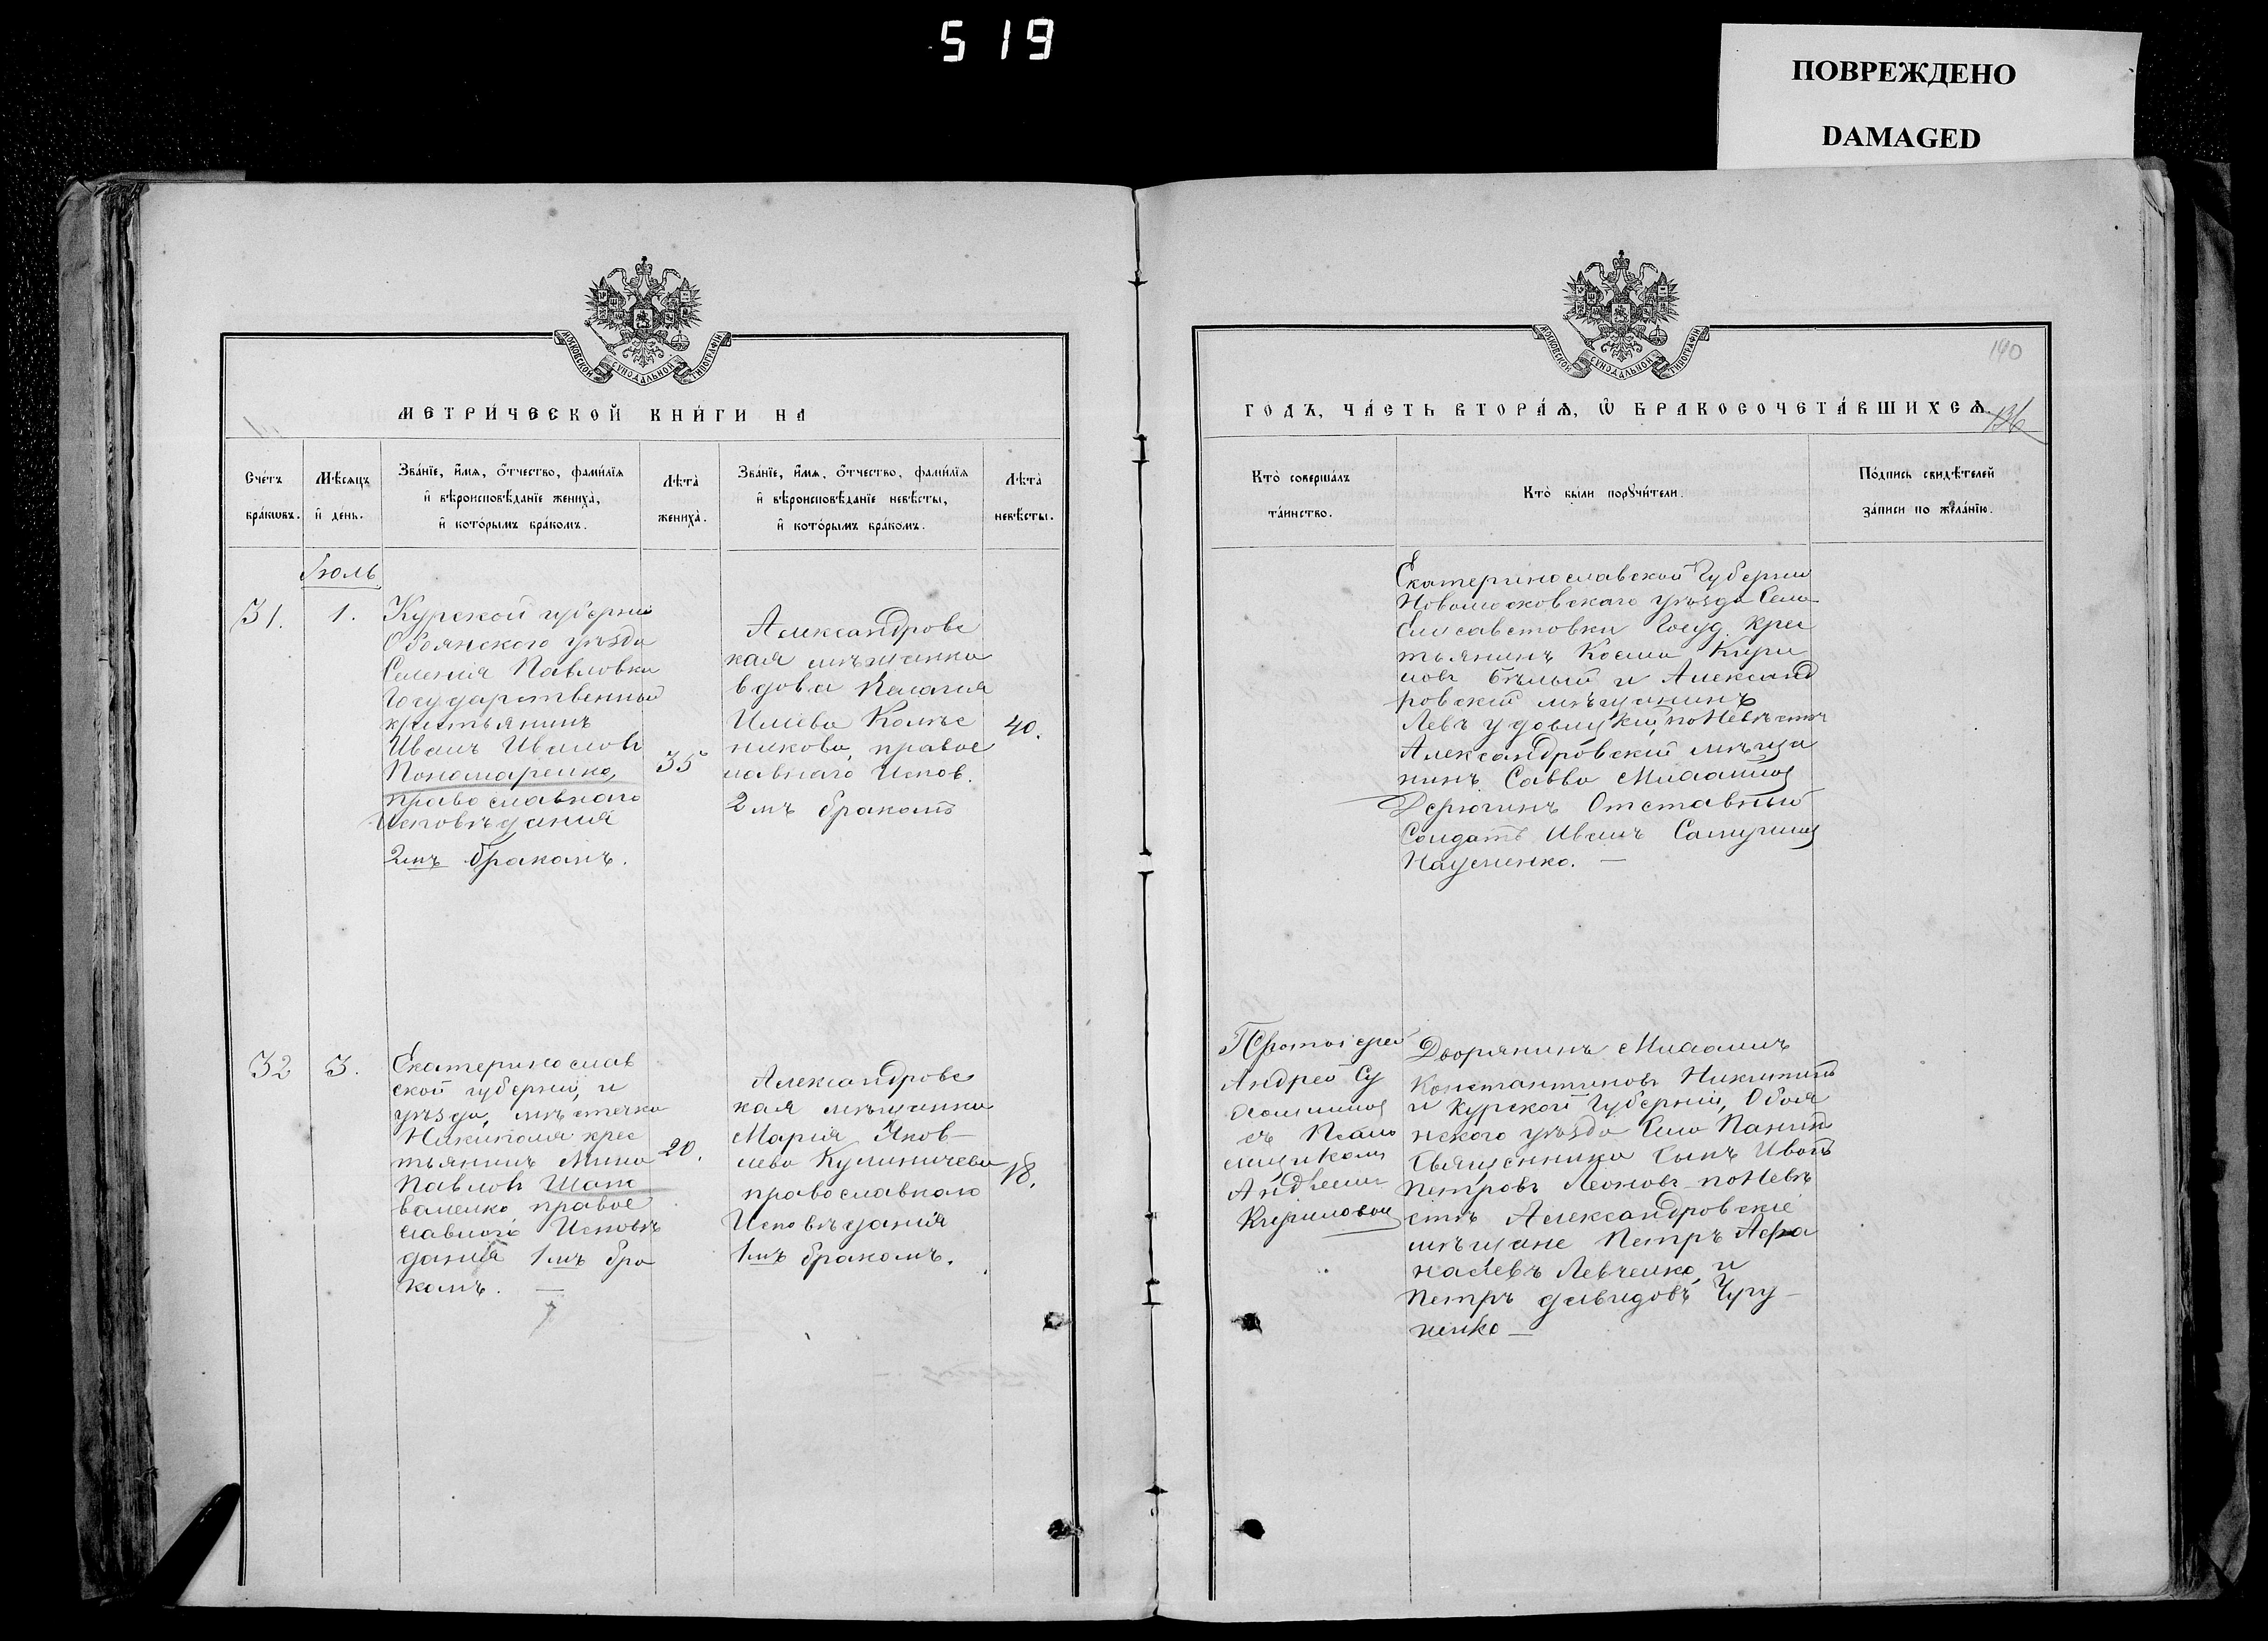 519
ПОВРЕЖДЕНО
DAMAGED
МОСКОВСКОЙ СѴНОДАЛЬНОЙ ТИПОГРАФІИ
МЕТРИ́ЧЕСКОЙ КНИ́ГИ НА
Сче́тъ бра́кωвъ.
Мѣ́сяцъ и҆ де́нь.
Зва́нїе, и҆́мѧ, ѻ҆́тчество, фами́лїѧ
и҆ вѣроисповѣ́данїе жениха̀,
и҆ кото́рымъ бра́комъ.
Лѣта̀ жениха̀.
Зва́нїе, и҆́мѧ, ѻ҆́тчество, фами́лїѧ
и҆ вѣроисповѣ́данїе невѣ́сты,
и҆ кото́рымъ бра́комъ.
Лѣта̀ невѣ́сты.
Іюль
31.
1.
Курской губерніи
Обоянского уѣзда
Селенія Павловки
Государственный
крестьянинъ
Иванъ Ивановъ
Пономаренко,
православнаго
Исповѣданія
2мъ бракомъ.
35
Александровс
кая мѣщанка
вдова Пелагия
Илиева
никова, правос
лавнаго Испов.
2мъ бракомъ
40.
32
3.
Екатеринослав
ской губерніи, и
уѣзда, мѣстечка
Никиполя крес
тьянинъ
Павловъ Шапо
валенко правос
лавного Исповѣ
данія 1мъ бра
комъ.
20.
Александровс
кая мѣщанка
Марія Яков-
лева Кулиничева
православнаго
Исповѣданія
1мъ бракомъ.
18.
МОСКОВСКОЙ СѴНОДАЛЬНОЙ ТИПОГРАФІИ
140
ГОДЪ, ЧА́СТЬ ВТОРА́Ѧ, Ѽ БРАКОСОЧЕТА́ВШИХСѦ.
136
Кто̀ соверша́лъ
та́инство.
Кто̀ бы́ли порꙋчи́тели.
По́дпись свидѣ́телей
за́писи по жела́нїю.
Екатеринославской Губерніи
Новомосковскаго уѣзда Села
Елисаветовки Госуд. Крес
тьянинъ Косма Кири
ловъ Бѣлый и Александ
ровскій мѣщанинъ
Левъ Удовицкій, по Невѣстѣ
Александровскій мѣща
нинъ Савва
Дерюгинъ Отставный
Солдатъ Иванъ
Науменко.
Протоіерей
Андрей Су
съ Псало
мщикомъ
Андреемъ
Кириловой
Дворянинъ
Константиновъ Никитинъ
и Курской Губерніи, Обоя
нского уѣзда Села
Священника Сынъ Иванъ
Петровъ Леоновъ по Невѣ
стѣ Александровскіе
мѣщане Петръ Афа
насіевъ Левченко, и
Петръ Давидовъ Чугу-
ненко